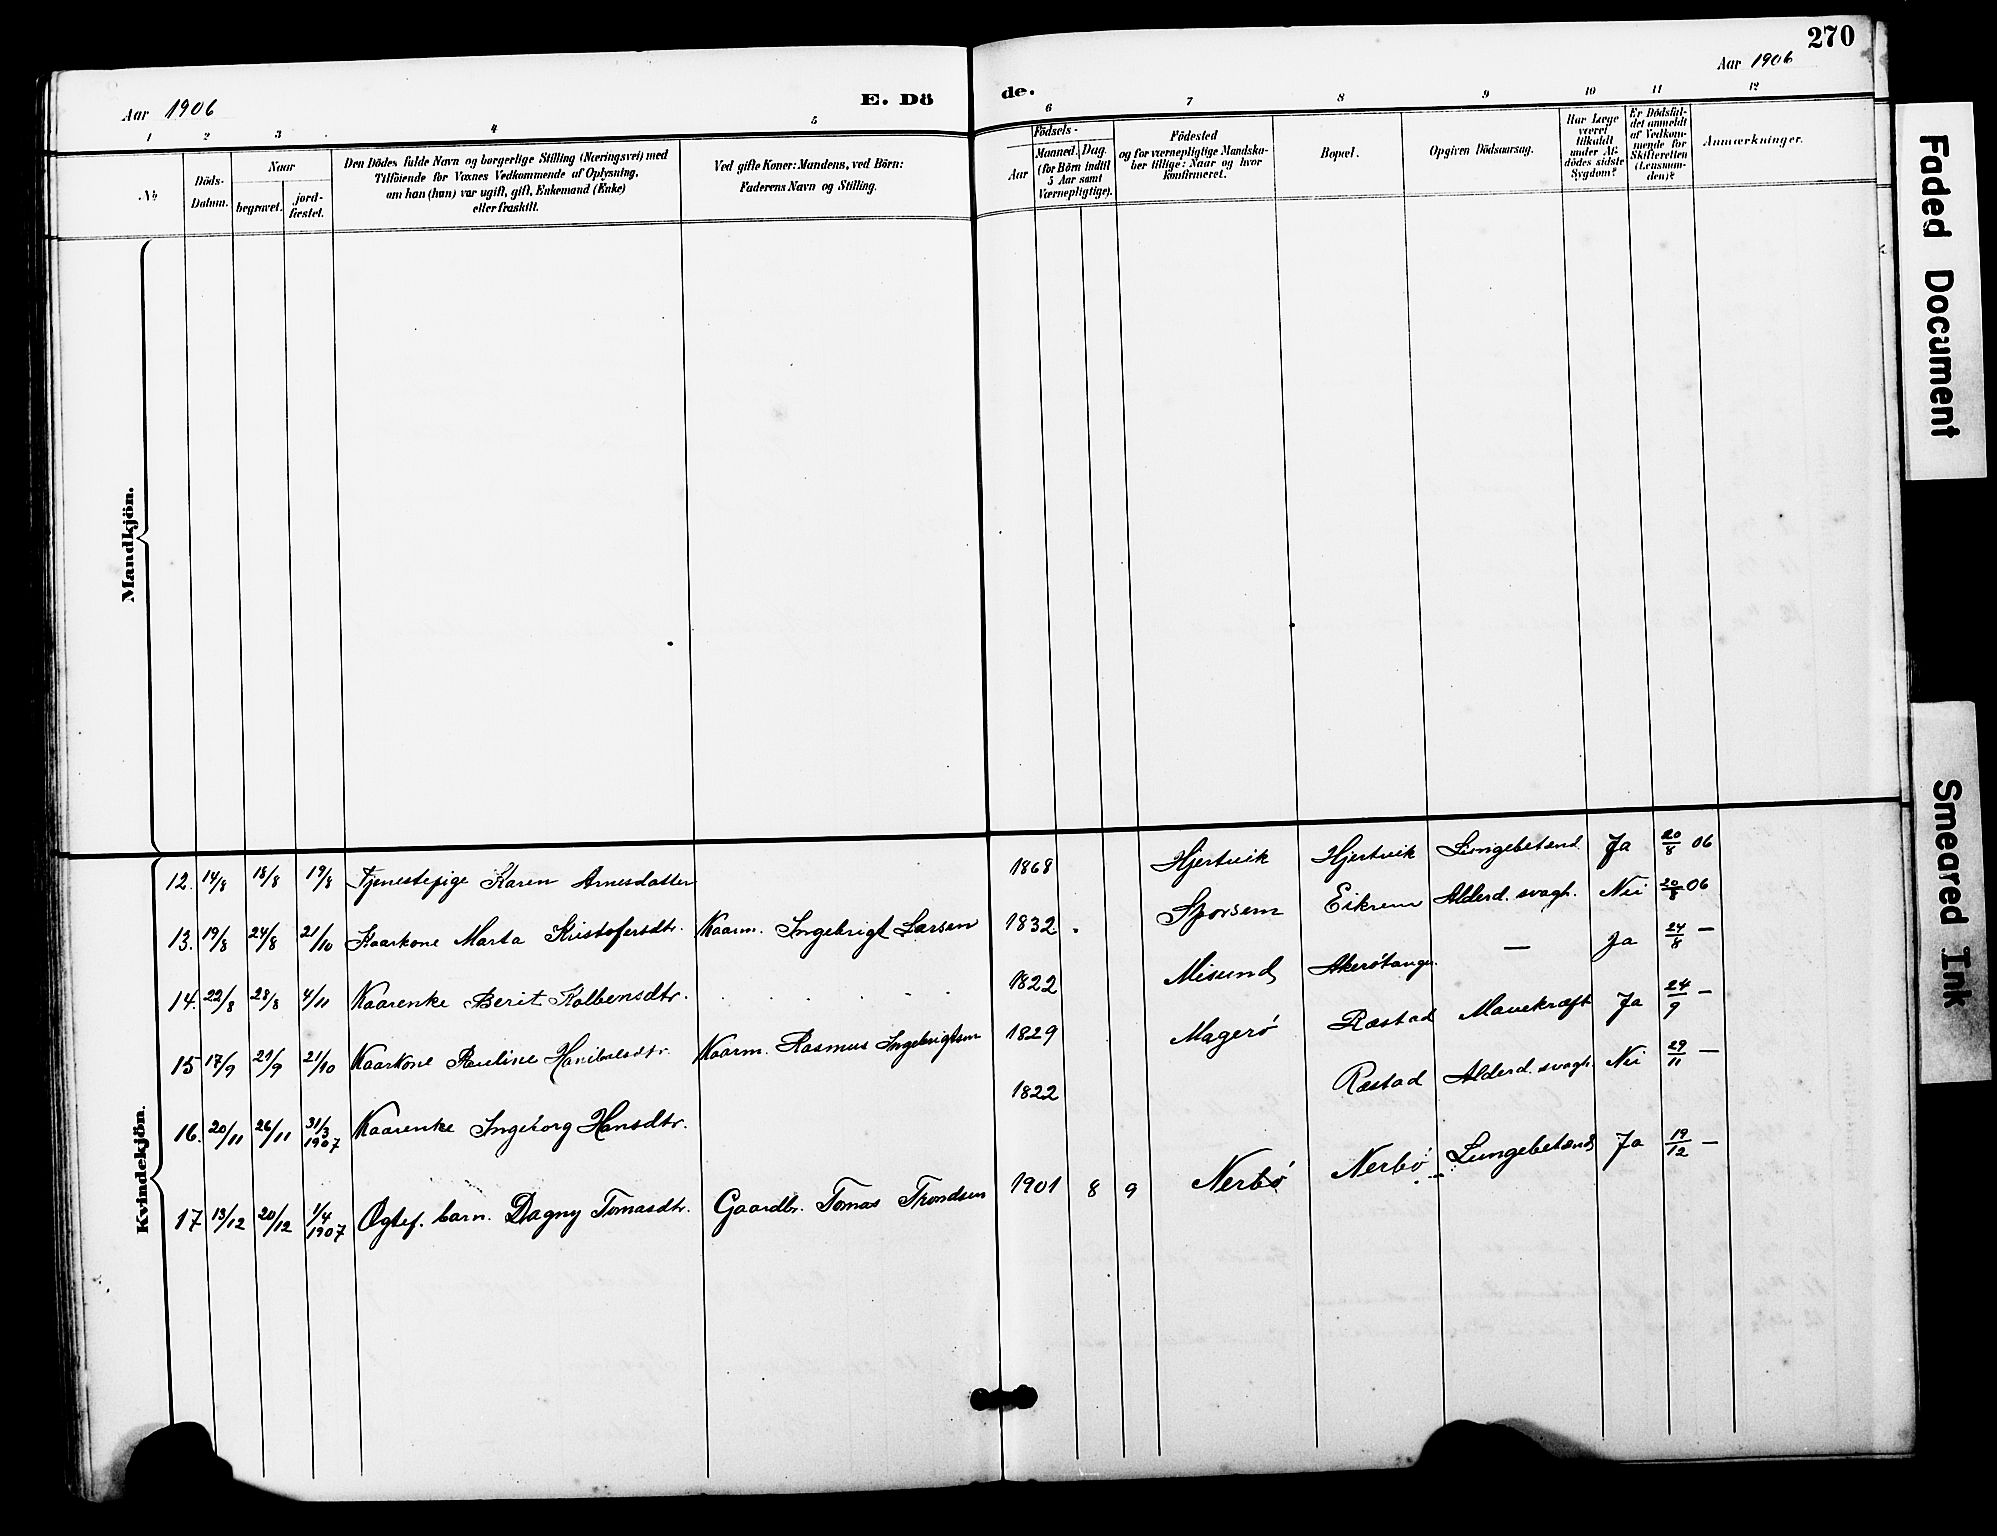 270
Aar 1906
E. Dö
de.
Aar 1906
1 2 3 4 5 6 7 8 9 10 11 12
№
Döds-Datum.
Naar
begravet.
jord-fæstet.
Den Dödes fulde Navn og borgerlige Stilling (Næringsvei) med
Tilföiende for Voxnes Vedkommende af Oplysning,
om han (hun) var ugift, gift, Enkemand (Enke)
eller fraskilt.
Ved gifte Koner: Mandens, ved Börn:
Faderens Navn og Stilling.
Födsels-
Aar
Maaned. Dag.
(for Börn indtil
5 Aar samt
Værnepligtige).
Födested
og for værnepligtige Mandska-
ber tillige: Naar og hvor
konfirmeret.
Bopæl.
Opgiven Dödsaarsag.
Har Læge
været
tilkaldt
under Af-
dödes sidste
Sygdom?
Er Dödsfal-
det anmeldt
af Vedkom-
mende for
Skifteretten
(Lensman-
den)?
Anmærkninger.
Mandkjön.
Kvindekjön.
12. 14/8 18/8 19/8 Tjenestepige Karen Arnesdatter 1868 Hjertvik Hjertvik Lungebetænd. Ja 20/8 06
13. 19/8 24/8 21/10 Kaarkone Marta Kristofersdtr. Kaarm. Ingebrigt Larsen 1832 Sporsem Eikrem Alderd. svagh. Nei 20/8 06
14. 22/8 28/8 4/11 Kaarenke Berit Kolbensdtr. 1822 Misund Akerøtangen — Ja 24/8 —
15 17/9 21/9 21/10 Kaarkone Pauline Hanibalsdtr. Kaarm. Rasmus Ingebrigtsen 1829 Magerö Ræstad Mavekræft Ja 24/9 —
16. 20/11 26/11 31/3 1907 Kaarenke Ingeborg Hansdtr. 1822 Ræstad Alderd. svagh. Nei 29/11 —
17 13/12 20/12 1/4 1907 Ægtef. barn. Dagny Tomasdtr. Gaardbr. Tomas Trondsen 1901 8 9 Nerbö Nerbö Lungebetænd. Ja 19/12 —
Faded Document
Smeared Ink